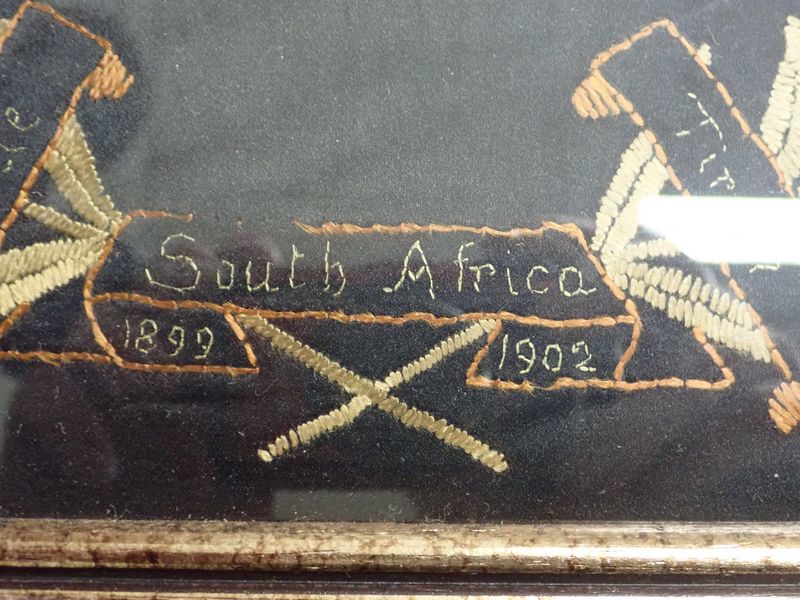 South Africa
1899 1902